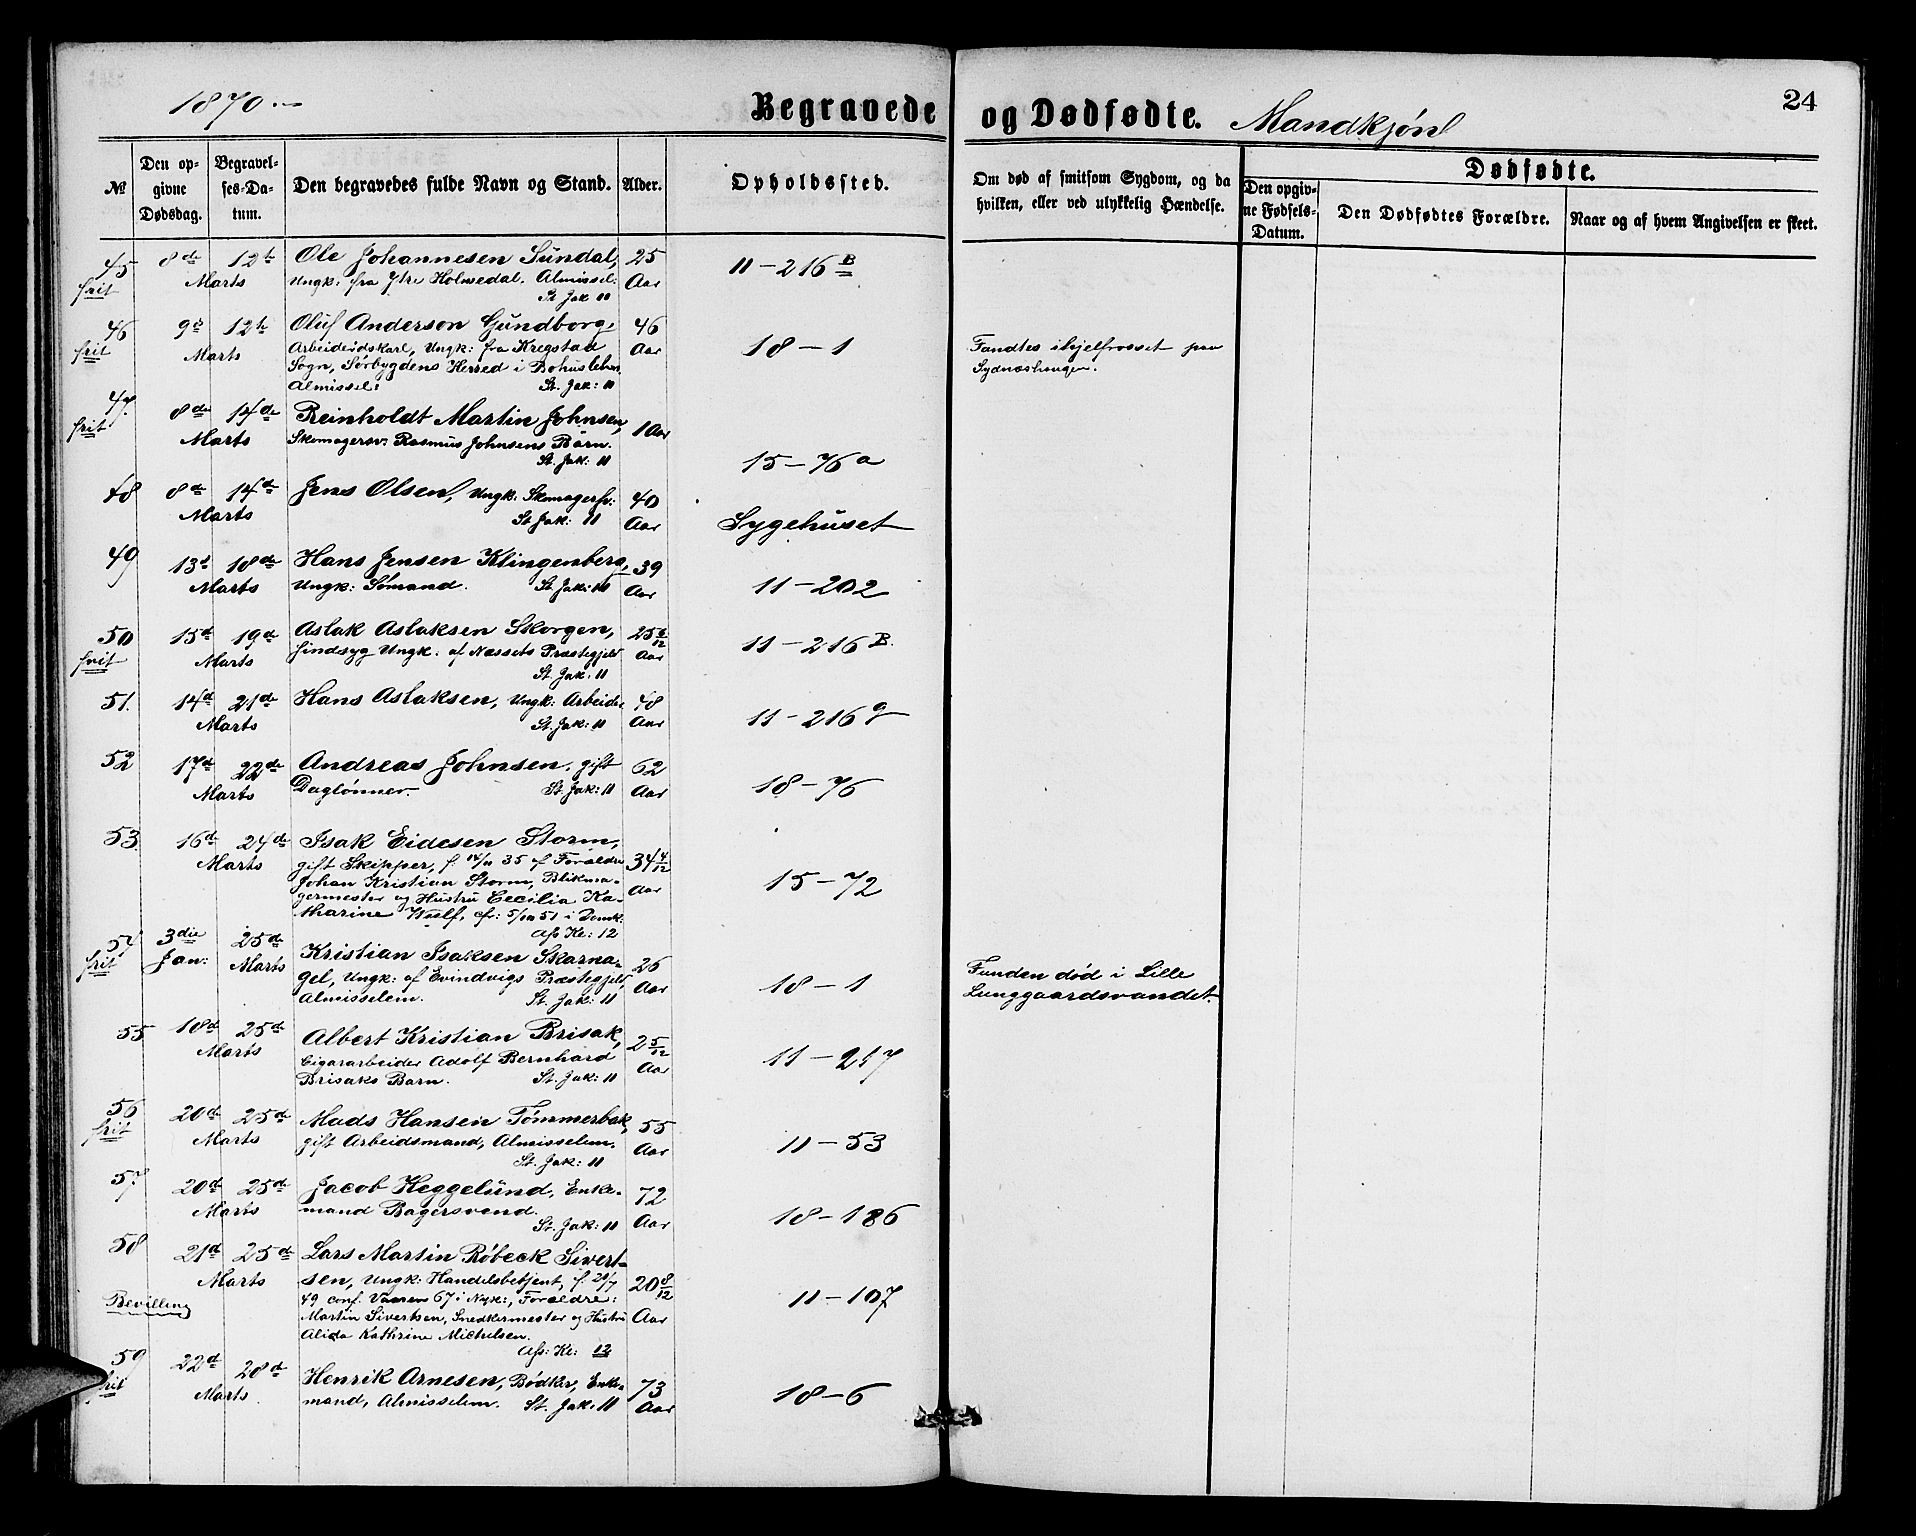 1870.
Begravede og Dødfødte. Mandkjøn
24
№
Den opgivne Dødsdag.
Begravelses-Datum.
Den begravedes fulde Navn og Stand.
Alder.
Opholdssted.
Om død af smitsom Sygdom, og da hvilken, eller ved ulykkelig Hændelse.
Dødfødte.
Den opgivne Fødsels-Datum.
Den Dødfødtes Forældre.
Naar og af hvem Angivelsen er skeet.
45 8de 12te Ole Johannesen Sundal, 25 11-216 B
frit Marts Ungk: fra Ytre Holmedal. Almissel: Aar
St. Jak 11
46 9de 12te Oluf Anderson Gundborg, 46 18-1
frit Marts Arbeidskarl, Ungk: fra Kregstad Aar Fandtes ihjelfrosset paa
Sogn, Sørbygdens Herred i Bohuslehn, Sydnæshaugen.
Almissel: St. Jak: 11
47. 8de 14de Reinholdt Martin Johnsen, 1 Aar
frit Marts Skomagersv: Rasmus Johnsens Barn.
St. Jak: 11 15-76a
48 8de 14de Jens Olsen, Ungk: Skomagersv: 40
Marts St. Jak: 11 Aar Sygehuset
49 13d 18de Hans Jensen Klingenberg, 39
Marts Ungk: Sømand. St. Jak: 11 Aar 11-202
50 15d 19de Aslak Aslaksen Skorgen, 25 6/12 11-216 B.
frit Marts sindsyg Ungk: af Næssets Præstegjeld Aar
St. Jak: 11
51. 14d 21de Hans Aslaksen, Ungk: Arbeider 48
Marts St. Jak: 11 Aar 11-216 g
52 17de 22de Andreas Johnsen, gift 62
Marts Dagtønner. St. Jak: 11 Aar 18-76
53. 16d 24de Isak Eidesen Storm,
Marts gift Skipper, f. 35 af Forældre 34 4/12
Johan Kristian Storm, Blikma- Aar 15-72
germester og Hustru Cecilia Ka-
tharine
Afs Kl: 12
54 3die 25de Kristian Isaksen Skarna- 26
frit Jan: Marts gel, Ungk: af Evindvigs Præstegjeld, Aar 18-1 Funden død i Lille
Almisselem. St. Jak: 11 Lunggaardsvandet.
55 18d 25de Albert Kristian Brisak, 2 5/12
Marts Cigararbeider Adolf Bernhard Aar 11-217
Brisaks Barn. St. Jak: 11
56 20de 25de Mads Hansen Tømmerbak, 55
frit Marts gift Arbeidsmand, Almisselem. Aar 11-53
St. Jak: 11
57 20de 25de Jacob Heggelund, Enke- 72
Marts mand Bagersvend. Aar 18-186
St. Jak: 11
58 21d 25de Lars Martin Røbeck Sivert-
Marts sen, Ungk: Handelsbetjent, f. 20/7 20 8/12
Bevilling 49 conf. Vaaren 67 i Nyk:, Forældre: Aar 11-107
Martin Sivertsen, Snedkermester og Hustru
Alida Kathrine Michelsen.
Afs: Kl: 12
59 22d 28de Henrik Arnesen, Bødker, Enke- 73
frit Marts mand, Almisselem. St. Jak: 11 Aar 18-6